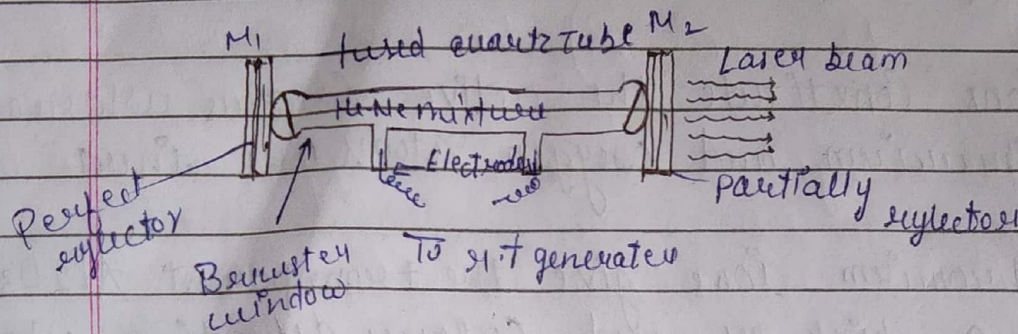 M1 fused quartz Tube M2
Laser beam
He-Ne mixture
Electrodes
Perfect reflector
partially reflector
Brewster window
To r.f generater